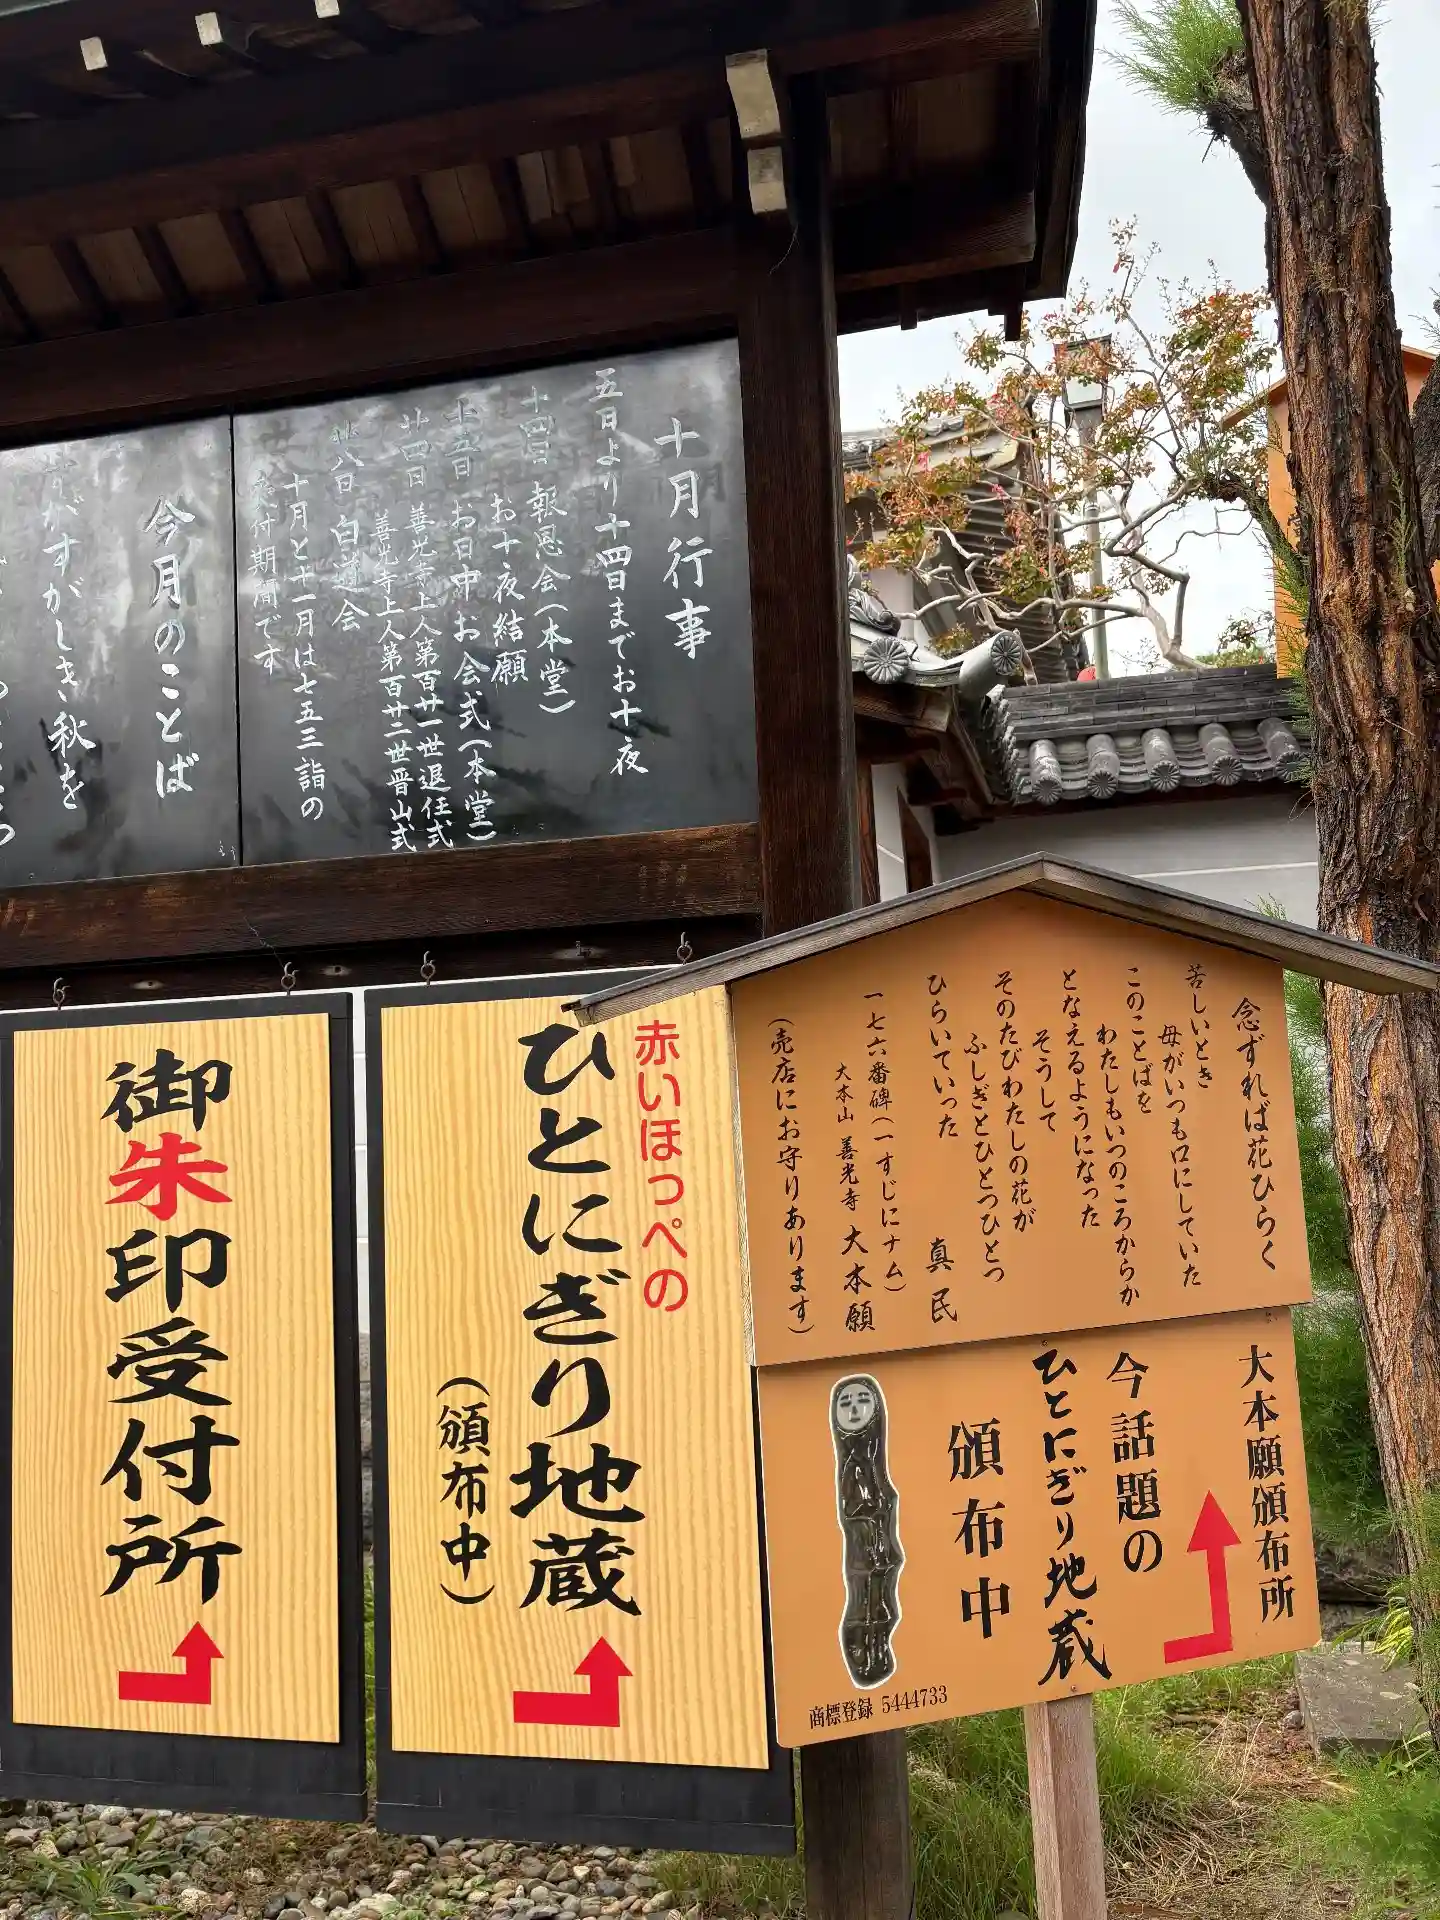 十月行事
五日より十四日までお十夜
十四日 報恩会(本堂)
お十夜結願
十五日 お日中 お会式(本堂)
廿四日 善光寺上人第百廿一世退任式
善光寺上人第百廿二世晋山式
廿八日 白道会
十月と十一月は七五三詣の
受付期間です
今月のことば
すがすがしき秋を
御朱印受付所
赤いほっぺの
ひとにぎり地蔵
(頒布中)
念ずれば花ひらく
苦しいとき
母がいつも口にしていた
このことばを
わたしもいつのころからか
となえるようになった
そうして
そのたびわたしの花が
ふしぎとひとつひとつ
ひらいていった
真民
一七六番碑(一すじにナム)
大本山 善光寺 大本願
(売店にお守りあります)
大本願頒布所
今話題の
ひとにぎり地蔵
頒布中
商標登録 5444733